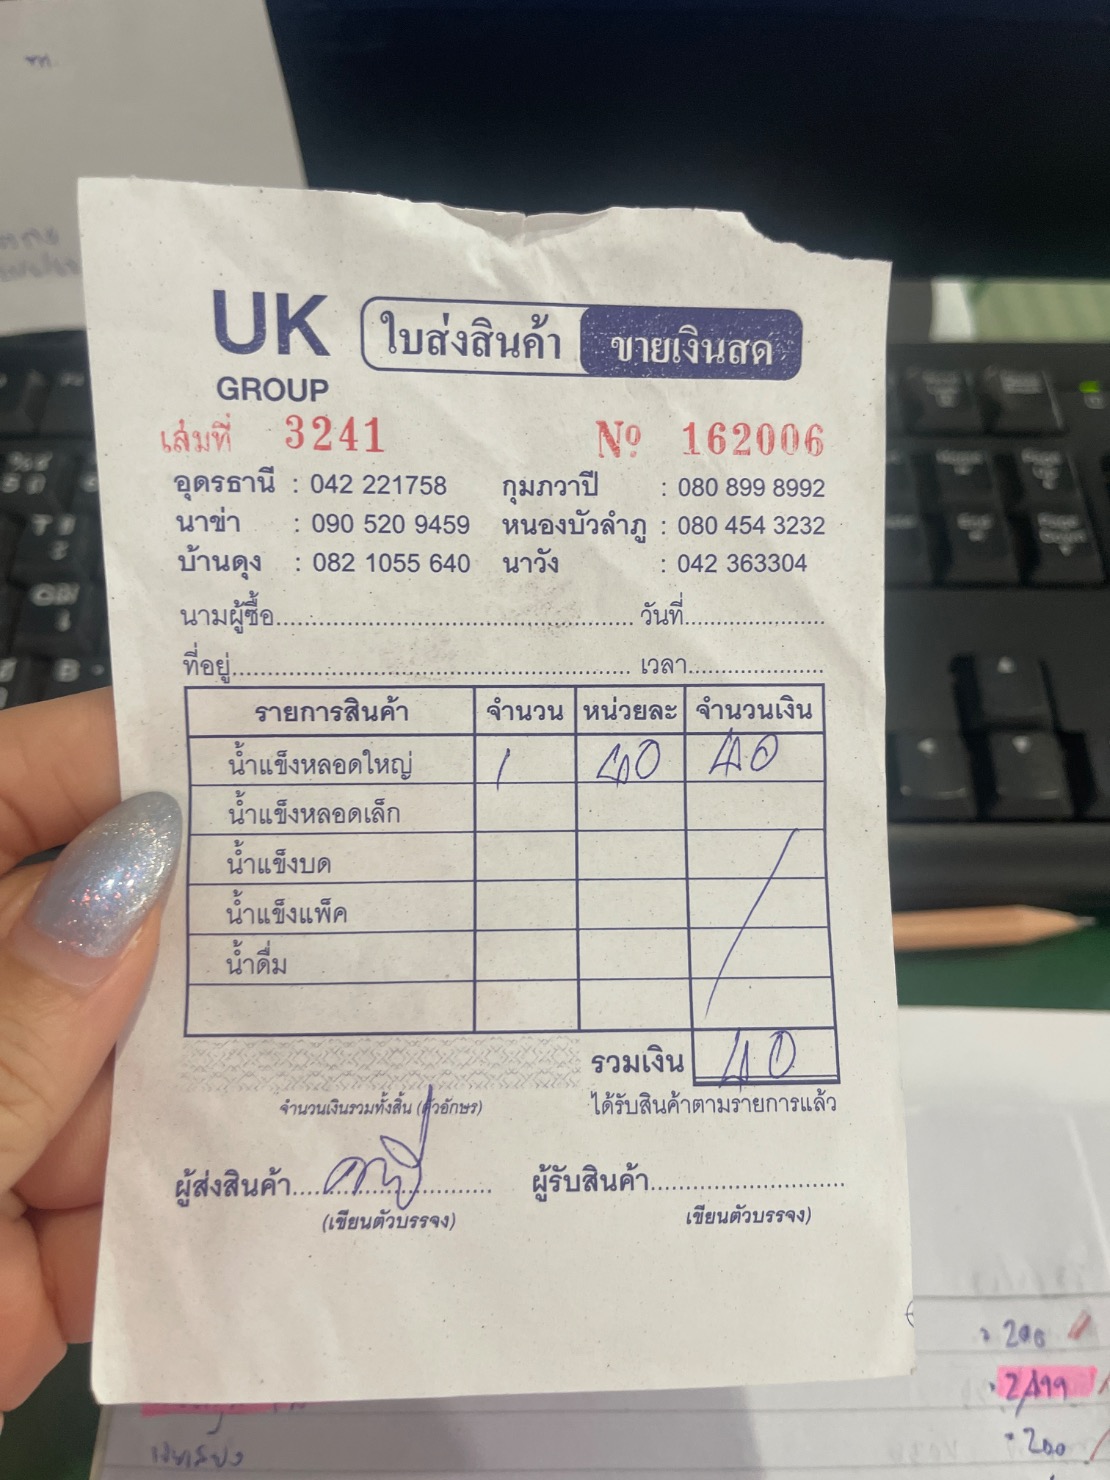 UK
GROUP
ใบส่งสินค้า ขายเงินสด
เล่มที่ 3241 Nº 162006
อุดรธานี : 042 221758 กุมภวาปี : 080 899 8992
นาข่า : 090 520 9459 หนองบัวลำภู : 080 454 3232
บ้านดุง : 082 1055 640 นาวัง : 042 363304
นามผู้ซื้อ วันที่
ที่อยู่ เวลา
รายการสินค้า จำนวน หน่วยละ จำนวนเงิน
น้ำแข็งหลอดใหญ่ 1 40 40
น้ำแข็งหลอดเล็ก
น้ำแข็งบด
น้ำแข็งแพ็ค
น้ำดื่ม
รวมเงิน 40
จำนวนเงินรวมทั้งสิ้น (ตัวอักษร) ได้รับสินค้าตามรายการแล้ว
ผู้ส่งสินค้า ผู้รับสินค้า
(เขียนตัวบรรจง) เขียนตัวบรรจง)
200
2,499
200